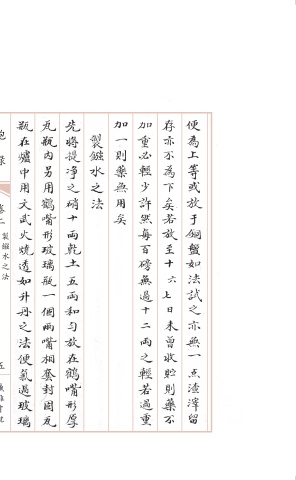 便為上等或放于銅盤如法試之亦無一点渣滓留
存亦不為下矣若放至十六七日未曾收貯則藥不
加重必輕少許然每百磅無過十二兩之輕若過重
加一則藥無用矣
製鏹水之法
先將提净之硝十兩乾土五兩和勻放在鶴嘴形厚
瓦瓶内另用鶴嘴形玻璃瓶一個兩嘴相套封固瓦
瓶在爐中用文武火燒透如升丹之法便氣過玻璃
卷二 製鏹水之法
五